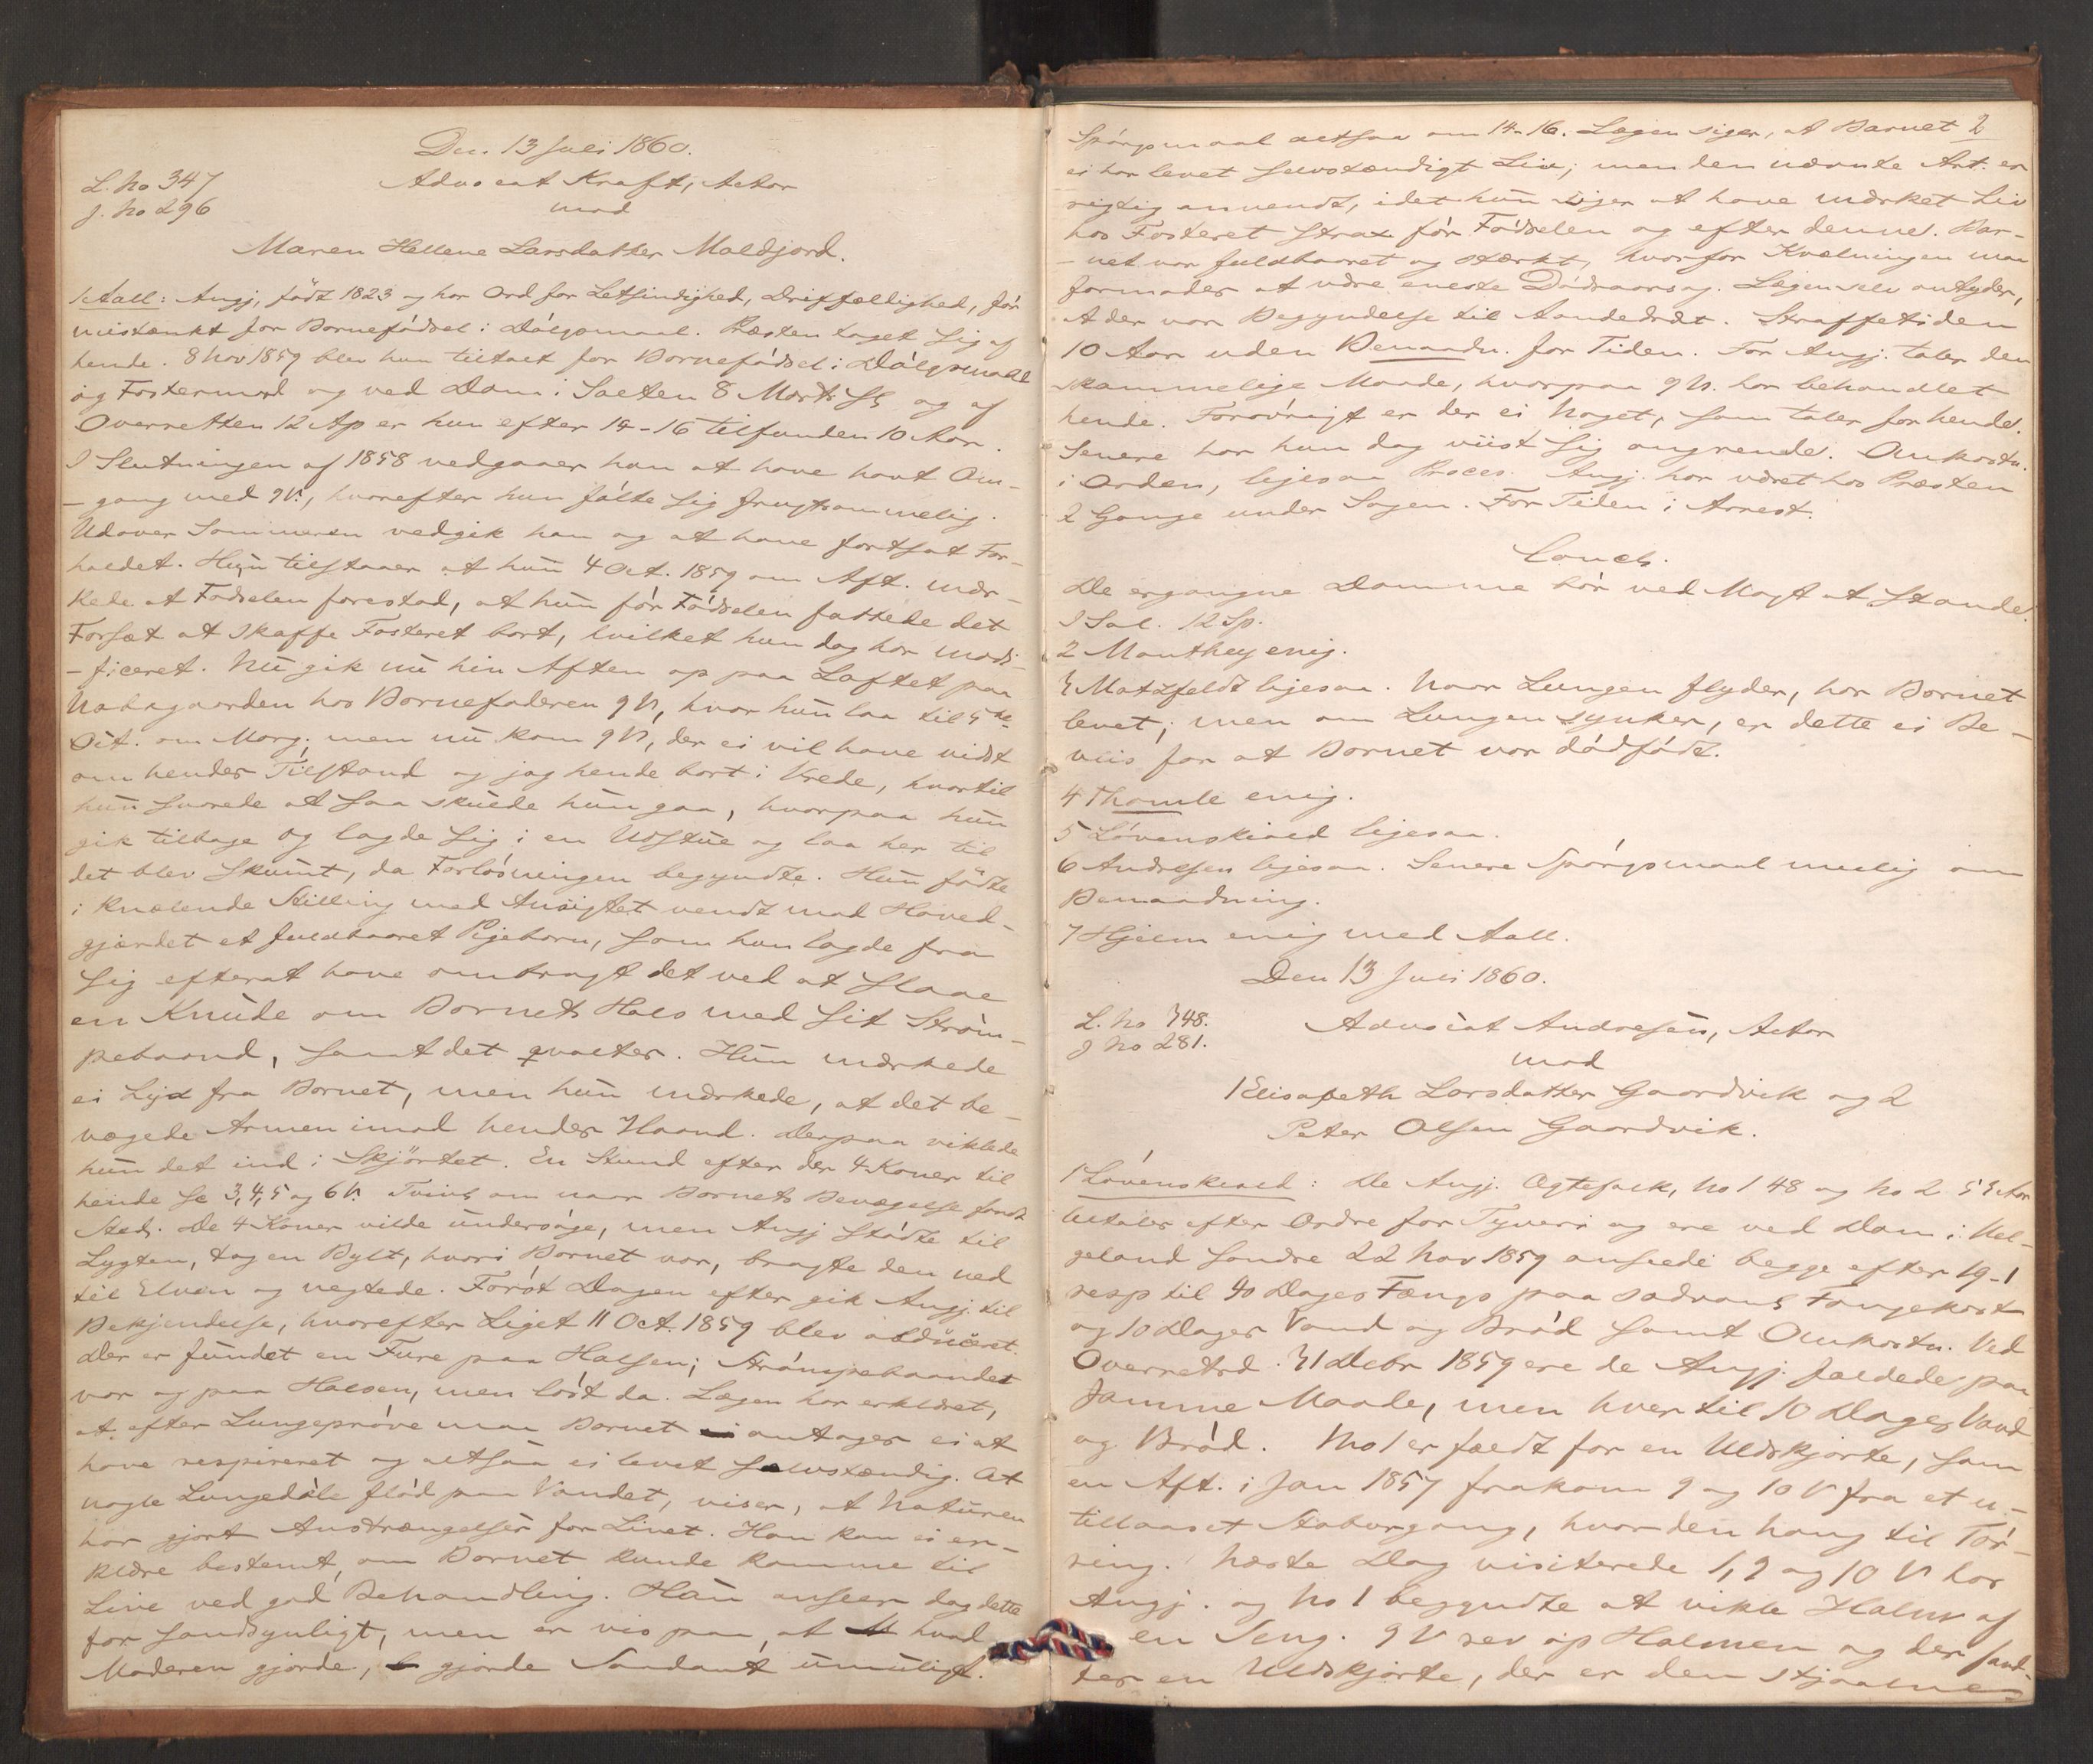 Den 13 Juli 1860.
L. No 347
J. No 296
Advocat Kraft, Actor
mod
Maren Hellene Larsdatter Maldjord.
1 Aall: Angj. född 1823 og har Ord for Letsindighed, Driffældighed, før
mistænkt for Barnefødsel i Dølgsmaal. Præsten taget sig af
hende. 8 Nov 1859 blev hun tiltalt for Barnefødsel i Dølgsmaal
og Fostermord og ved Dom i Salten 8 Marts og af
Overretten 12 Ap er hun efter 14-16 tilfunden 10 Aar.
I Slutningen af 1858 vedgaaer han at have havt Om-
-gang med 9 V., hvorefter hun følte sig frugtsommelig.
Udover Sommeren vedgik han og at have fortsat For-
holdet. Hun tilstaaer at hun 4 Oct. 1859 om Aft. mær-
kede at Fødselen forestod, at hun før Fødselen fattede det
Forsæt at skaffe Fosteret bort, hvilket hun dog har modi-
-ficeret. Nu gik nu hin Aften op paa Loftet paa
Nabogaarden hos Barnefaderen 9 V, hvor hun laa til 5te
Oct. om Morg., men nu kom 9 V, der ei vil have vidst
om hendes Tilstand og jog hende bort i Vrede, hvortil
hun svarede at saa skulde hun gaa, hvorpaa hun
gik tilbage og lagde sig i en Udstue og laa her til
det blev skumt, da Forløsningen begyndte. Hun fødte
i knælende Stilling med Ansigtet vendt mod Hoved-
gjærdet et fuldbaaret Pigebarn, som hun lagde fra
sig efterat have ombragt det ved at slaae
en Knude om Barnets Hals med sit Strøm-
pebaand, samt det qvalter. Hun mærkede
ei Lyd fra Barnet, men hun mærkede, at det be-
vægede Armen imod hendes Haand. Derpaa viklede
hun det ind i Skjörtet. En Stund efter der 4 Koner til
hende se 3, 4, 5 og 6 V. Tvivl om naar Barnets Bevægelse fandt
Sted. De 4 Koner vilde undersøge, men Angj stødte til
Lygten, tog en Bylt, hvori Barnet var, bragte den ned
til Elven og negtede. Først Dagen efter gik Angj. til
Bekjendelse, hvorefter Liget 11 Oct. 1859 blev obduceret.
Der er fundet en Fure paa Halsen; Strømpebaandet
var og paa Halsen, men løst da. Lægen har erklæret,
at efter Lungeprøve maa Barnet antages ei at
have respireret og altsaa ei levet selvstændig. At
nogle Lungedele flød paa Vandet, viser, at Naturen
har gjort Anstrængelser for Livet. Han kan ei er-
klære bestemt, om Barnet kunde komme til
Live ved god Behandling. Han anseer dog dette
for sandsynligt, men er vis paa, at hvad
Moderen gjorde, gjorde Saadant umuligt.
2
Spørgsmaal altsaa om 14-16. Lægen siger, at Barnet
ei har levet selvstændigt Liv; men den nævnte Art. er
rigtig anvendt, idet hun siger at have mærket Liv
hos Fosteret strax før Fødselen og efter denne. Bar-
-net var fuldbaaret og stærkt, hvorfor Kvælningen maa
formodes at være eneste Dødsaarsag. Lægen selv antyder,
at der var Begyndelse til Aandedræt. Straffetiden
10 Aar uden Benaadn. for Tiden. For Angj. taler den
skammelige Maade, hvorpaa 9 V. har behandlet
hende. Forøvrigt er der ei Noget, som taler for hende.
Senere har hun dog viist sig angrende. Omkostn.
i Orden, ligesaa Proces. Angj. har været hos Præsten
2 Gange under Sagen. For Tiden i Arrest.
Concl.
De ergangne Domme bør ved Magt at stande.
I Sal. 12 Sp.
2 Manthey enig.
3 Motzfeldt ligesaa. Naar Lungen flyder, har Barnet
levet; men om Lungen synker, er dette ei Be-
viis for at Barnet var dødfødt.
4 Thomle enig.
5 Løvenskiold ligesaa.
6 Andresen ligesaa. Senere Spørgsmaal muelig om
Benaadning.
7 Hjelm enig med Aall.
Den 13 Juli 1860.
L. No 348.
J No 281.
Advocat Andresen, Actor
mod
1 Elisabeth Larsdatter Gaardvik og 2
Peter Olsen Gaardvik.
1 Løvenskiold: De Angj. Ægtefolk, No 1 48 og No 2 53 Aar
tiltales efter Ordre for Tyveri og ere ved Dom i Hel-
geland søndre 22 Nov 1859 ansede begge efter 19-1
resp til 40 Dages Fængs paa sædvanl Fangekost
og 10 Dages Vand og Brød samt Omkostn. Ved
Overretsd. 31 Debr 1859 ere de Angj. fældede paa
samme Maade, men hver til 10 Dages Vand
og Brød. No 1 er fældt for en Uldskjorte, som
en Aft. i Jan 1857 frakom 9 og 10 V fra et u-
tillaaset Staburgang, hvor den hang til Tør-
ring. Næste Dag visiterede 1, 9 og 10 V hos
Angj. og No 1 begyndte at vikle Halm af
en Seng. 9 V rev op Halmen og der fand-
tes en Uldskjorte, der er den stjaalne